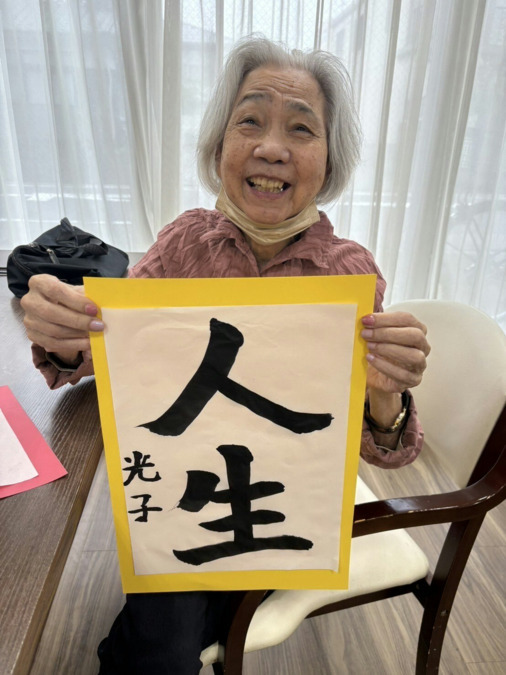 人生
光子